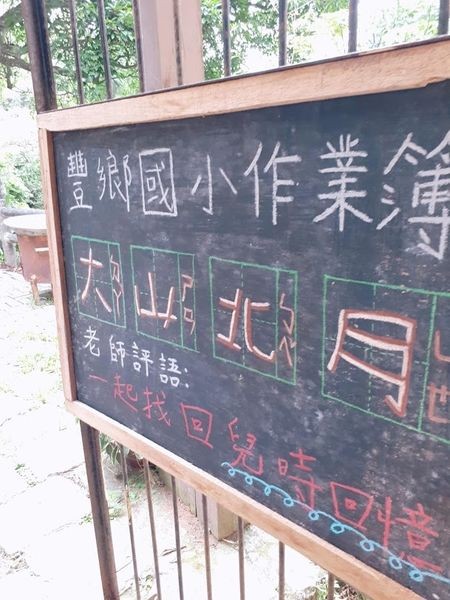 豐鄉國小作業簿
大山北月
老師評語:
一起找回兒時回憶